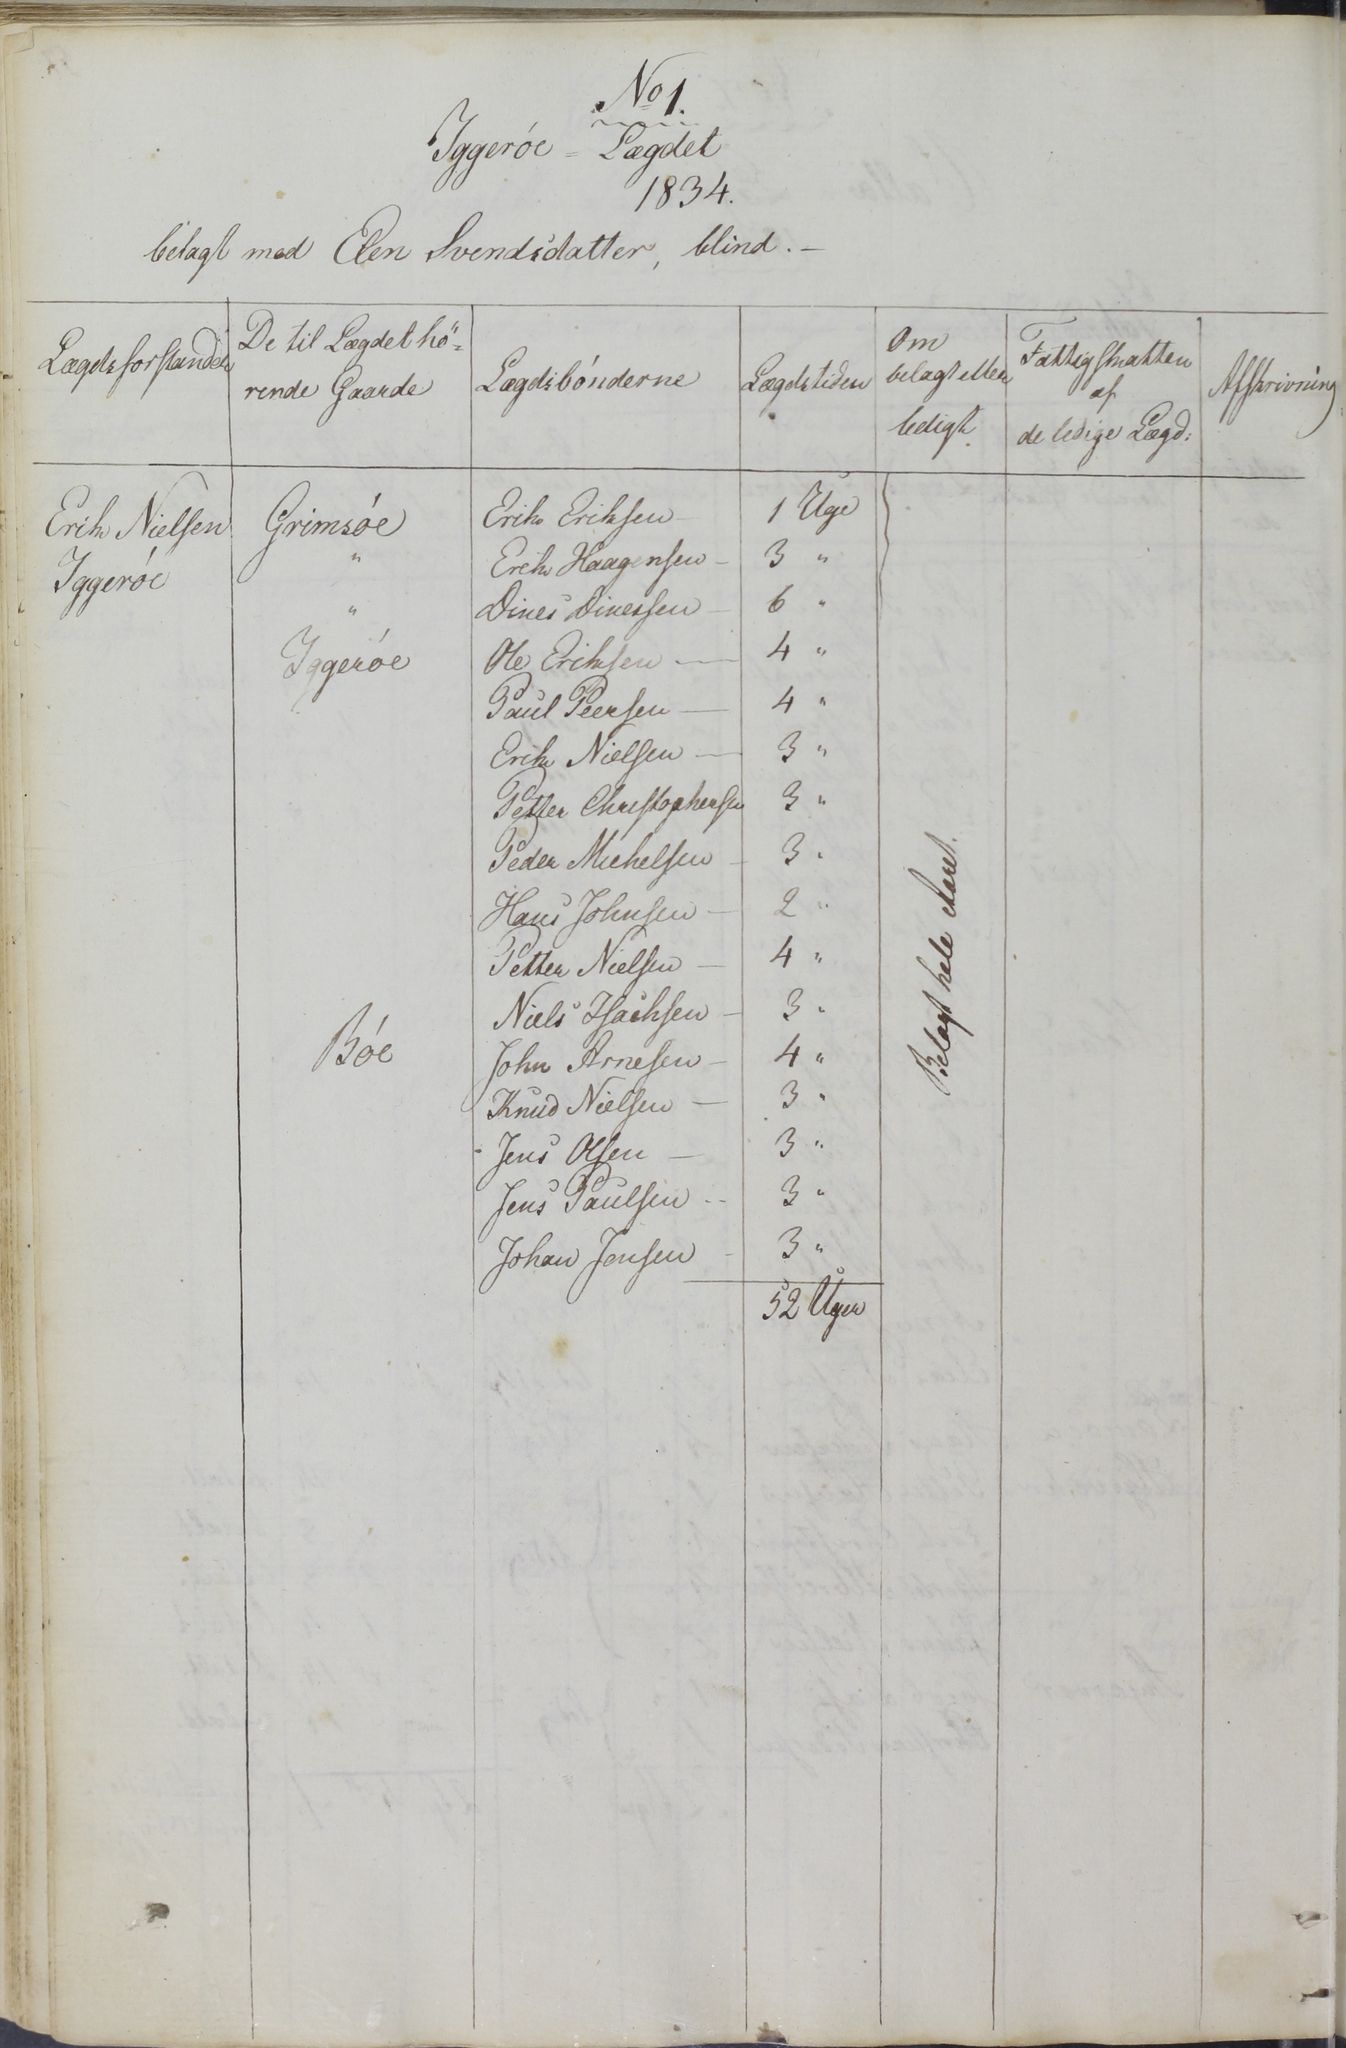 No 1.
Iggerøe - Lægdet
1834.
belagt med Elen Svendsdatter, blind. -
Lægdsforstander De til Lægdet hö= Lægdsbønderne Lægdstiden Om Fattigskatten Afskrivning
rende Gaarde belagt eller af
ledigt. de ledige Lægd:
Erik Nielsen Grimsøe Erik Eriksen 1 Uge
Iggerøe " Erik Haagensen - 3 "
" Dines Dinessen - 6 "
Iggerøe Ole Eriksen - 4 "
Paul Peersen - 4 "
Erik Nielsen - 3 "
Petter Christophersen 3 "
Peder Michelsen - 3 "
Hans Johnsen - 2 "
Petter Nielsen - 4 "
Niels Isachsen - 3 "
Bøe John Arnesen - 4 "
Knud Nielsen - 3 "
Jens Olsen - 3 "
Jens Paulsen - 3 "
Johan Jensen - 3 "
52 Uger
Belagt hele Aaret.